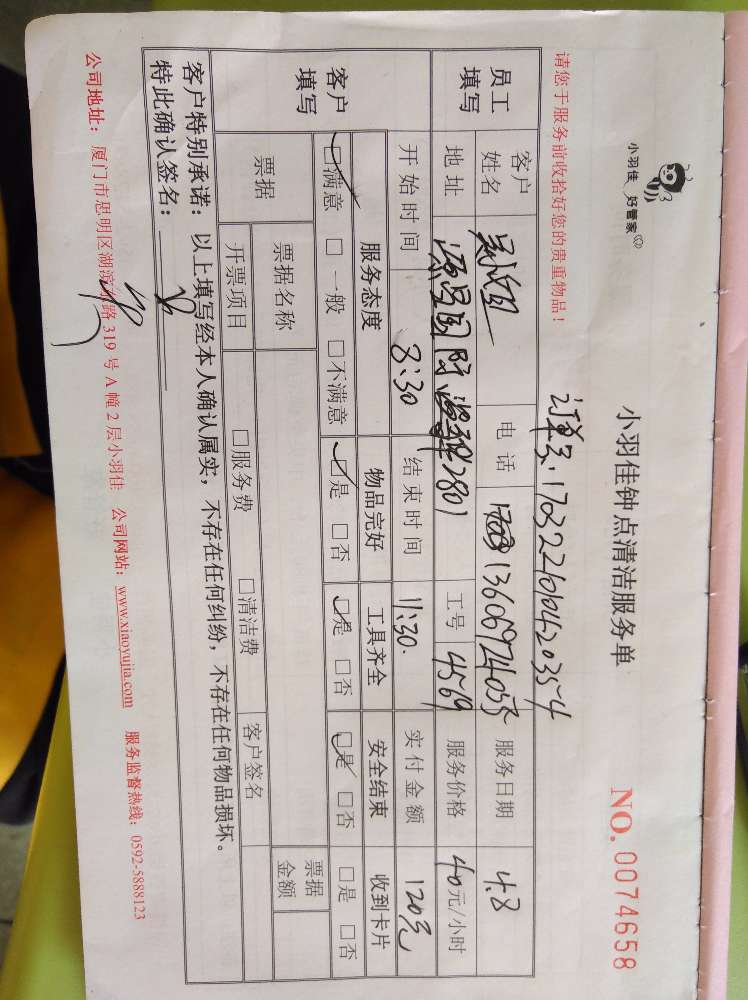 小羽佳 好管家
小羽佳钟点清洁服务单
NO. 0074658
请您于服务前收拾好您的贵重物品！
订单号:17032210104203554
员工填写 客户姓名 电话 13606924053 服务日期 4.8
地址 2801 工号 4569 服务价格 40元/小时
开始时间 8:30 结束时间 11:30. 实付金额 120元
客户填写 服务态度 物品完好 工具齐全 安全结束 收到卡片
☑满意 □一般 □不满意 ☑是 □否 ☑是 □否 ☑是 □否 □是 □否
票据 票据名称 票据金额
开票项目 □服务费 □清洁费 客户签名
客户特别承诺：以上填写经本人确认属实，不存在任何纠纷，不存在任何物品损坏。
特此确认签名：
公司地址：厦门市思明区湖滨路 319 号 A 幢 2 层小羽佳 公司网站：www.xiaoyujia.com 服务监督热线：0592-5888123